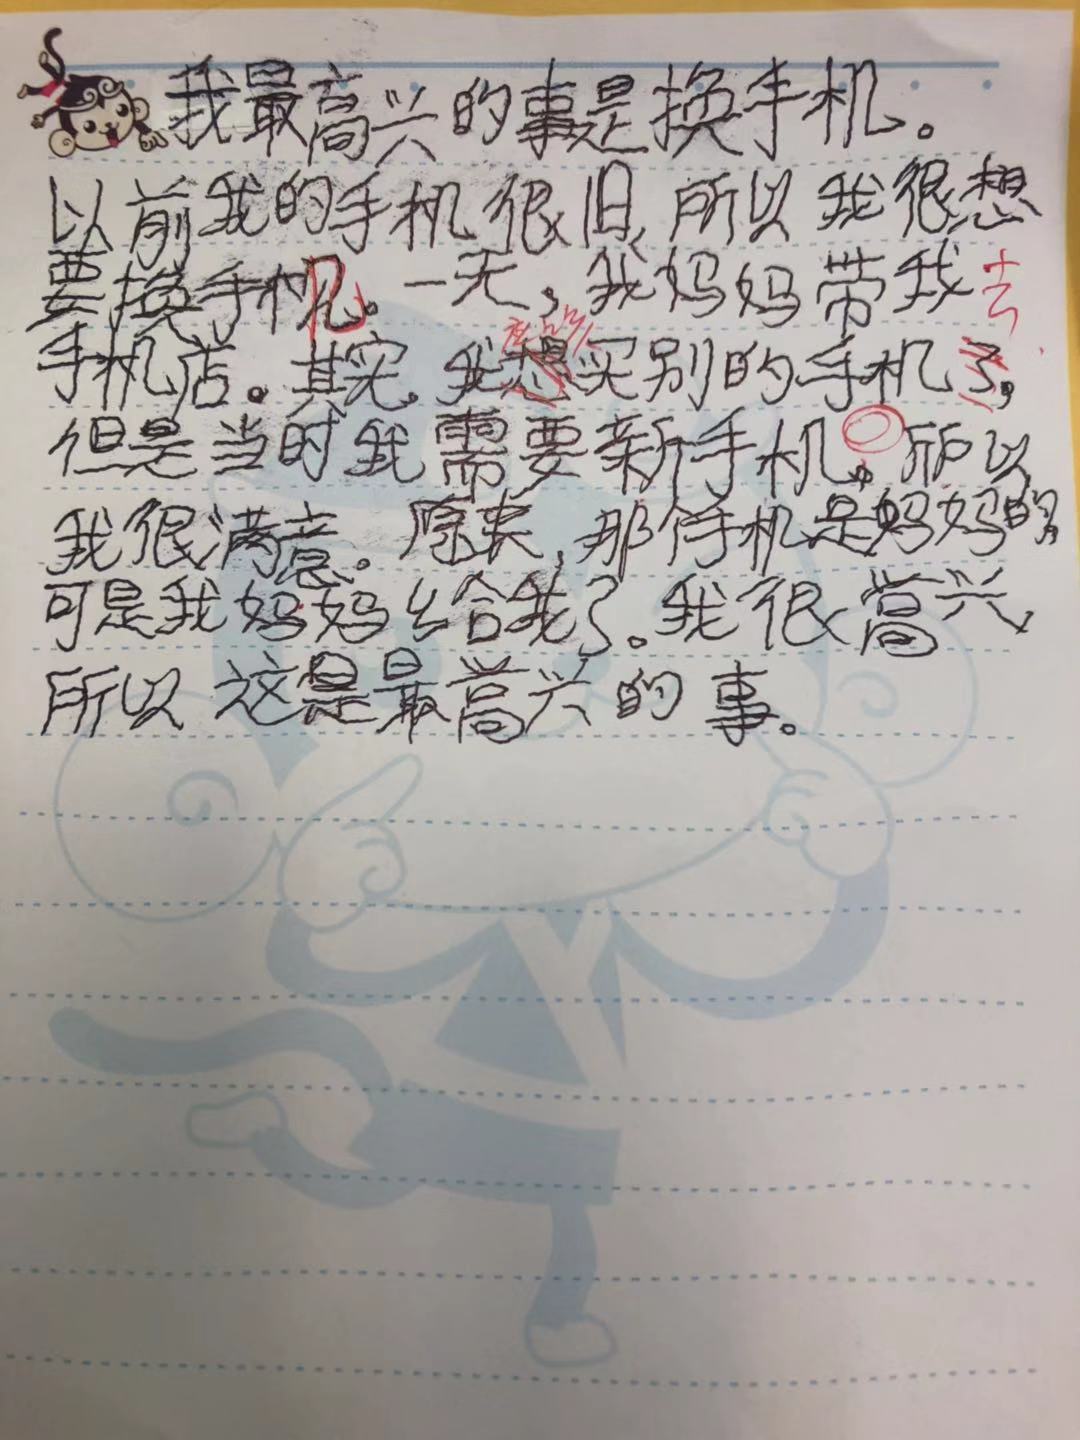 我最高兴的事是换手机。
以前我的手机很旧,所以我很想
要换手机。一天,我妈妈带我去
手机店。其实,我想买别的手机了,
但是当时我需要新手机。所以
我很满意。原来,那个手机是妈妈的,
可是我妈妈给我了。我很高兴,
所以这是最高兴的事。